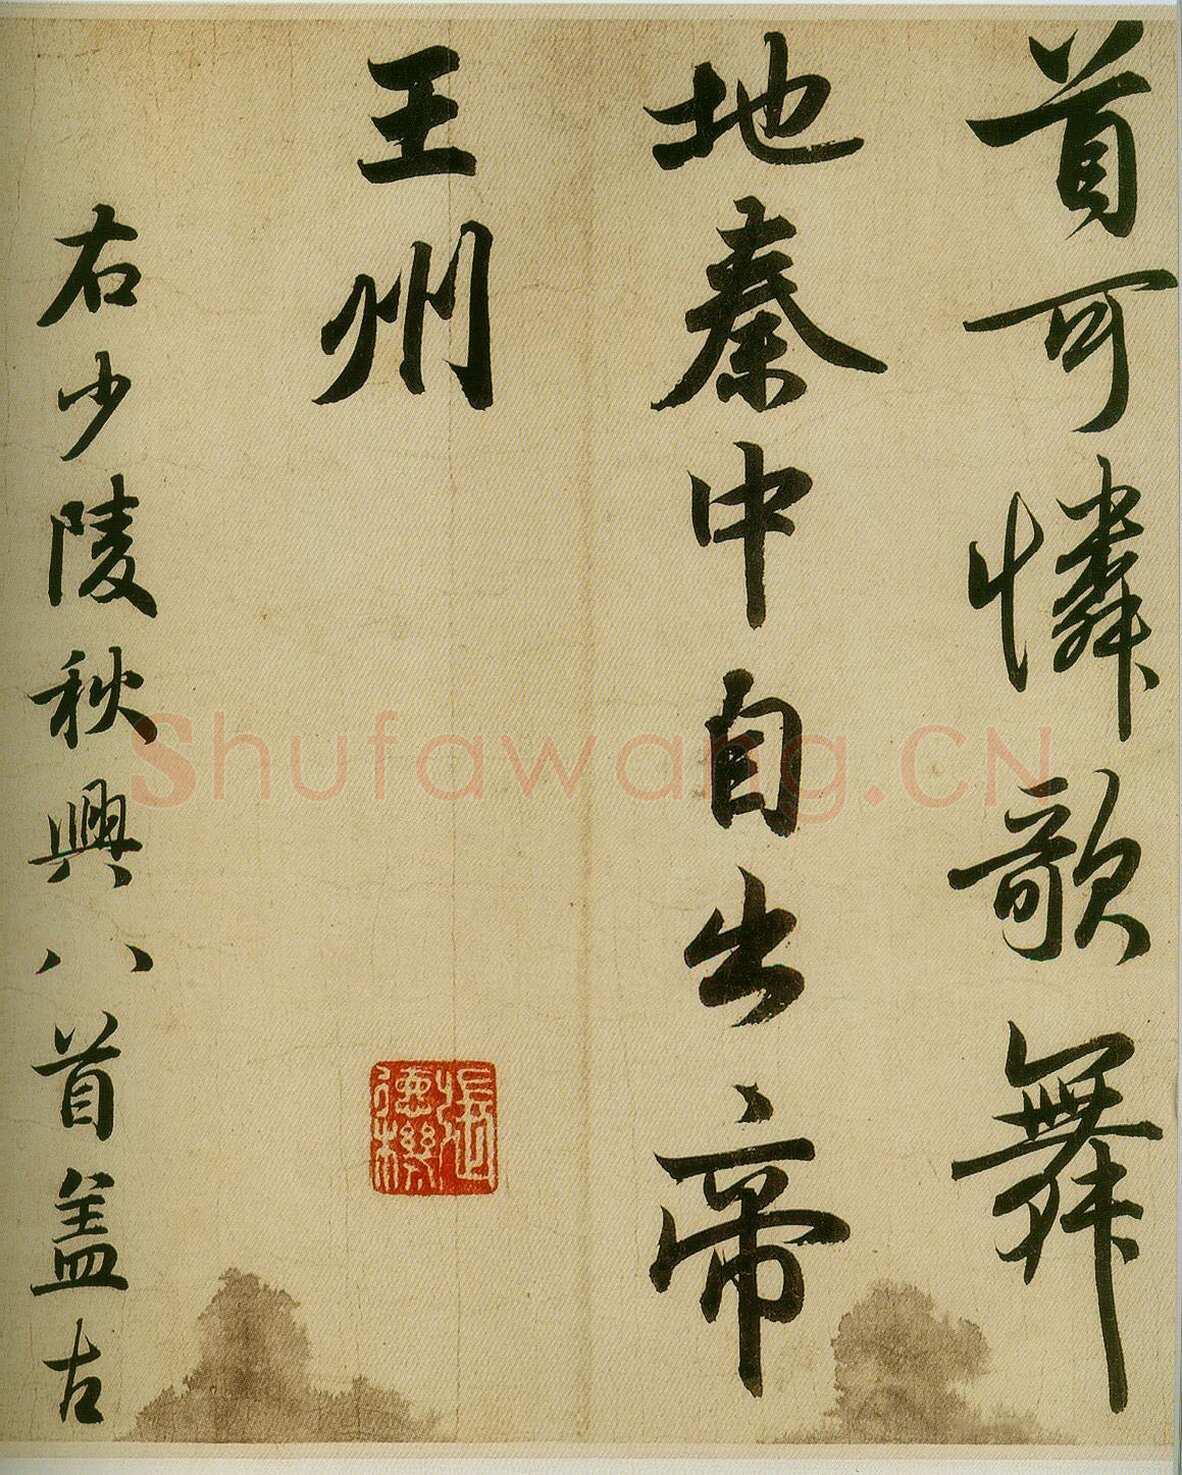 首可憐歌舞
地秦中自出帝
王州
張氏德機
右少陵秋興八首盖古
Shufawang.CN